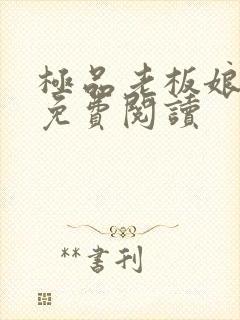 極品老板娘
免費閱讀
**書刊